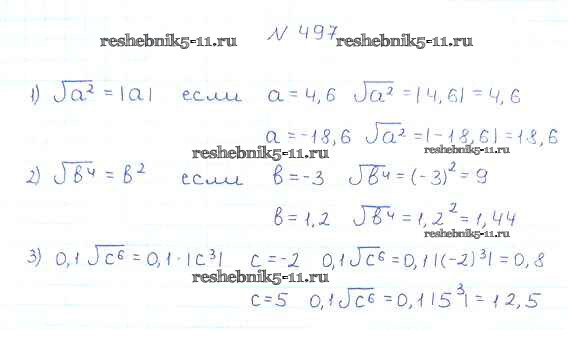 № 497
reshebnik5-11.ru reshebnik5-11.ru
1) √a² = |a| если a = 4,6 √a² = |4,6| = 4,6
a = -18,6 √a² = |-18,6| = 18,6
reshebnik5-11.ru reshebnik5-11.ru
2) √b⁴ = b² если b = -3 √b⁴ = (-3)² = 9
b = 1,2 √b⁴ = 1,2² = 1,44
reshebnik5-11.ru reshebnik5-11.ru
3) 0,1√c⁶ = 0,1·|c³| c = -2 0,1√c⁶ = 0,1|(-2)³| = 0,8
reshebnik5-11.ru
c = 5 0,1√c⁶ = 0,1|5³| = 12,5